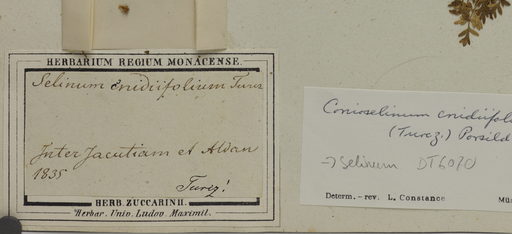 HERBARIUM REGIUM MONACENSE.
Selinum cnidiifolium Turcz
Inter Jacutiam et Aldan
1835
Turcz!
HERB. ZUCCARINII.
Herbar. Univ. Ludov. Maximil.
Conioselinum cnidiifoli
(Turcz.) Porsild
→ Selinum DT6070
Determ. - rev. L. Constance Mü